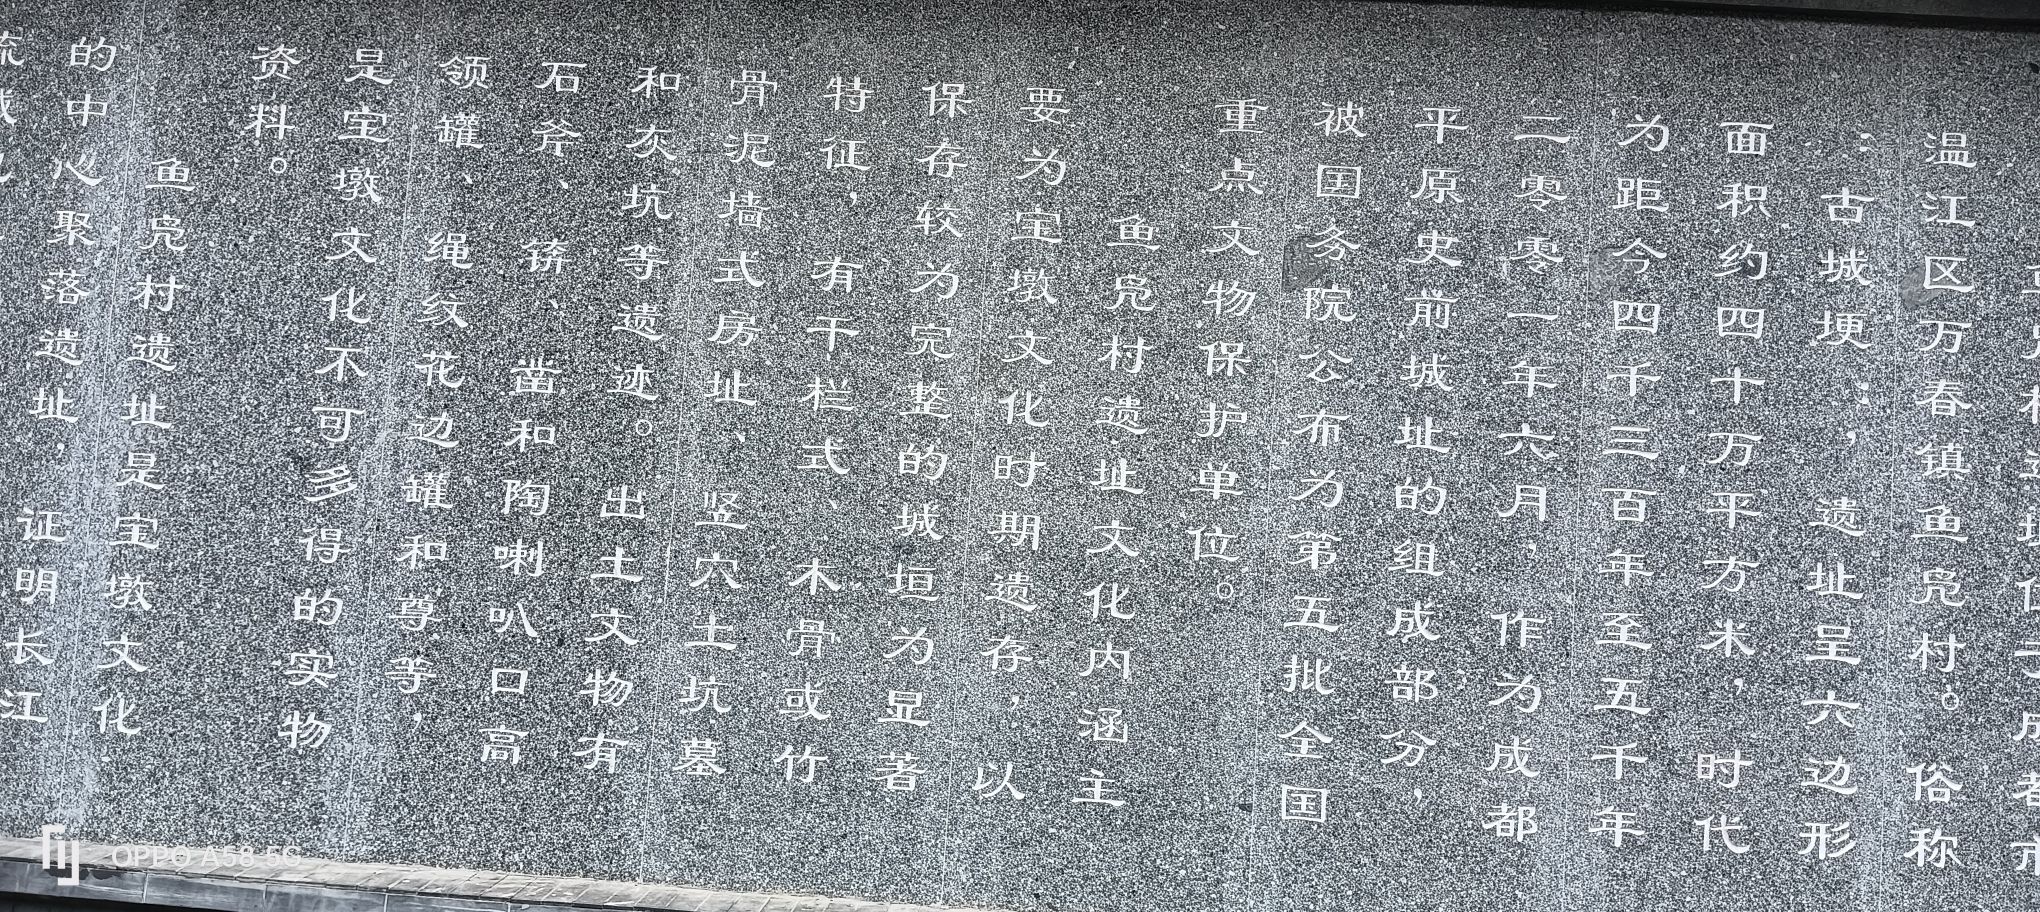 温江区万春镇鱼凫村。俗称
“古城埂”，遗址呈六边形
面积约四十万平方米，时代
为距今四千三百年至五千年
二零零一年六月，作为成都
平原史前城址的组成部分，
被国务院公布为第五批全国
重点文物保护单位。
鱼凫村遗址文化内涵主
要为宝墩文化时期遗存，以
保存较为完整的城垣为显著
特征，有干栏式、木骨或竹
骨泥墙式房址、竖穴土坑墓
和灰坑等遗迹。出土文物有
石斧、锛、凿和陶喇叭口高
领罐、绳纹花边罐和尊等，
是宝墩文化不可多得的实物
资料。
鱼凫村遗址是宝墩文化
的中心聚落遗址，证明长江
OPPO A58 5G